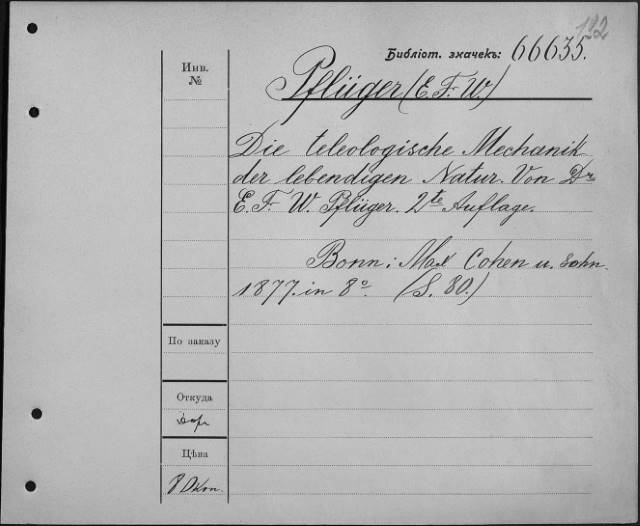 192
Библіот. значекъ: 66635.
Инв.
№
Pflüger (E. F. W.)
Die teleologische Mechanik
der lebendigen Natur. Von Dr
E. F. W. Pflüger. 2te Auflage.
Bonn: Max Cohen u. Sohn.
1877. in 8°. (S. 80.)
По заказу
Откуда
Цѣна